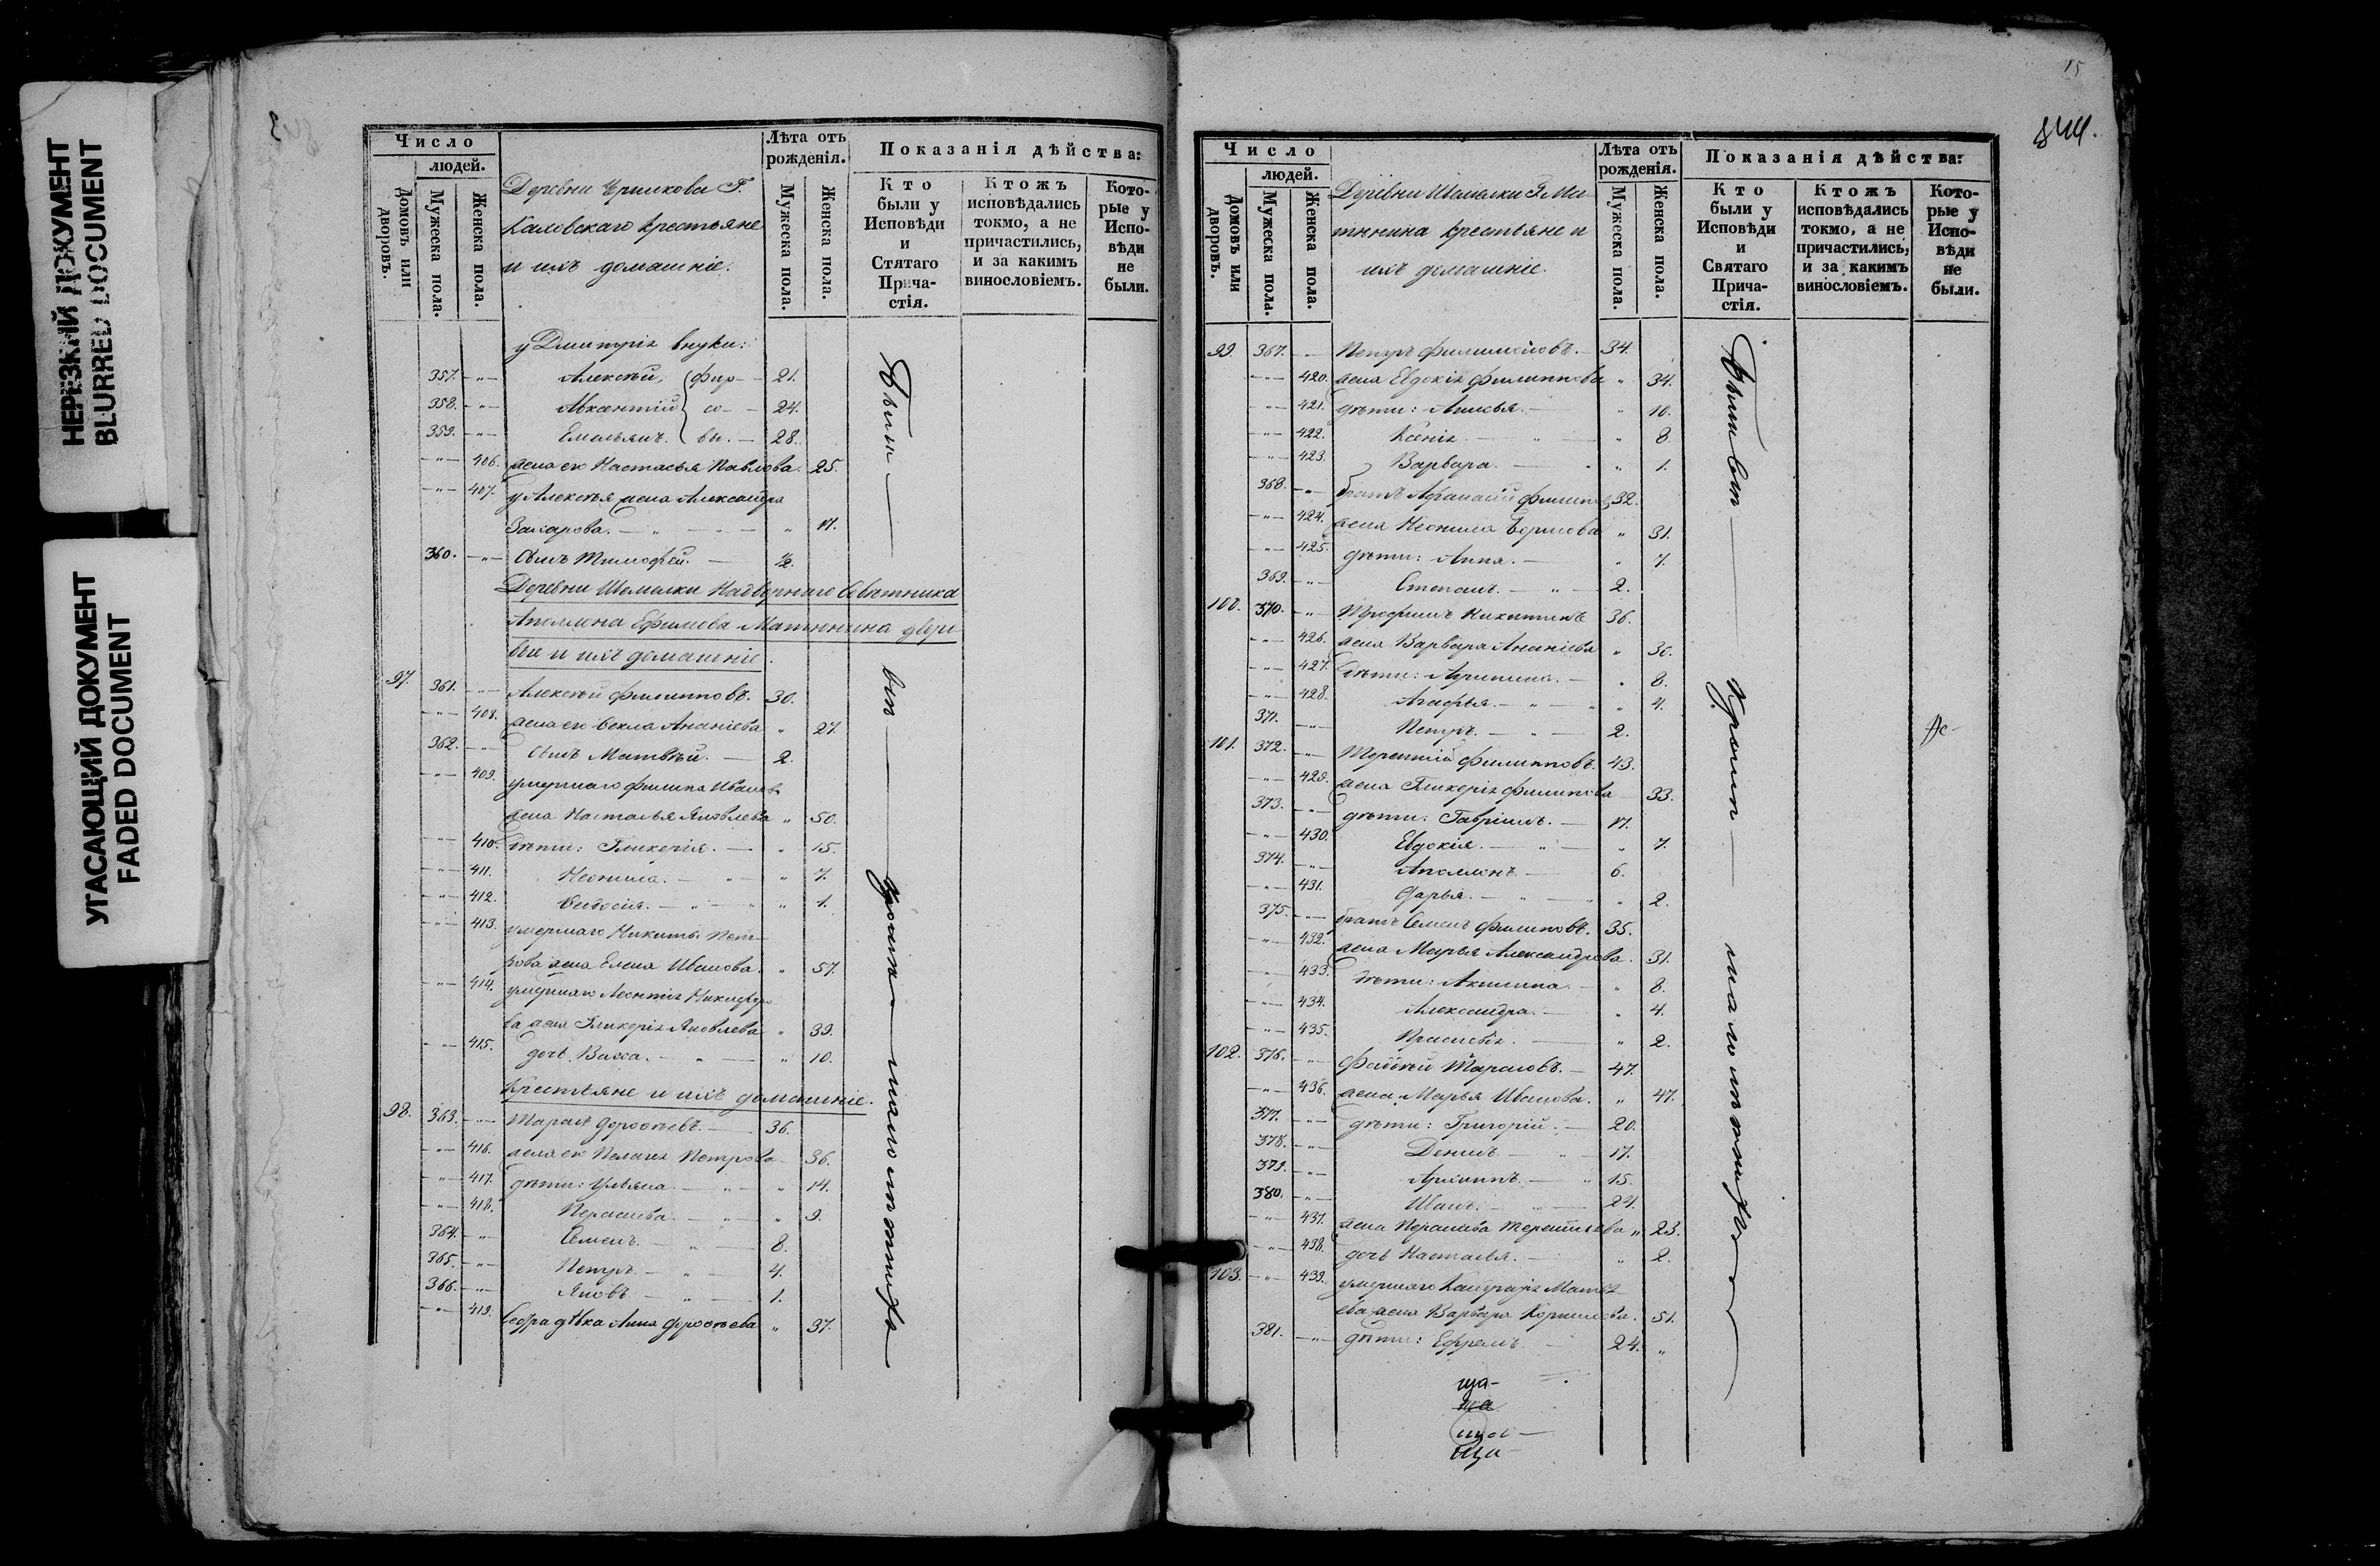 НЕРЕЗКИЙ ДОКУМЕНТ
BLURRED DOCUMENT
УГАСАЮЩИЙ ДОКУМЕНТ
FADED DOCUMENT
Число
людей.
Домовъ или дворовъ.
Мужеска пола.
Женска пола.
Деревни
Г.
Каловскаго крестьяне
и ихъ домашніе.
Лѣта отъ рожденія.
Мужеска пола.
Женска пола.
Показанія дѣйства:
Кто были у Исповѣди и Стятаго Прича-стія.
Ктожъ исповѣдались токмо, а не причастились, и за какимъ винословіемъ.
Кото-рые у Испо-вѣди не были.
у Дмитрія внуки:
357. Алексѣй, фир- 21.
358. Авксентій со- 24.
359. Емельянъ. вы. 28.
406. жена его Настасья Павлова. 25.
407. у Алексѣя жена Александра
Захарова. 17.
360. Сынъ Тимофей. ½.
Деревни Шамалки Надворнаго Совѣтника
Аполлона Ефимова Матюнина дворо
вые и ихъ домашніе.
97. 361. Алексѣй Филипповъ. 30.
408. жена его Фекла Ананіева 27.
362. Сынъ Матвѣй. 2.
409. умершаго Филипа Иванова
жена Настасья Яковлева 50.
410. дѣти: Гликерія. 15.
411. Неонила. 7.
412. Федосія. 1.
413. умершаго Никиты Пет-
рова жена Елена Иванова. 57.
414. умершаго Леонтія Никифоро
ва жена Гликерія Яковлева 39.
415. дочь Васса. 10.
Крестьяне и ихъ домашніе.
98. 363. Тарасъ Дорофѣевъ. 36.
416. жена его Пелагія Петрова 36.
417. дѣти: Ульяна. 14.
418. Парасква. 9.
364. Семенъ. 8.
365. Петръ. 4.
366. Яковъ. 1.
419. Сестра дѣвка Анна Дорофѣева 37.
Были вси Кромѣ малолѣтнихъ
15
844.
Число
людей.
Домовъ или дворовъ.
Мужеска пола.
Женска пола.
Деревни Шамалки Г. Ма-
тюнина крестьяне и
ихъ домашніе.
Лѣта отъ рожденія.
Мужеска пола.
Женска пола.
Показанія дѣйства:
Кто были у Исповѣди и Святаго Прича-стія.
Ктожъ исповѣдались токмо, а не причастились, и за какимъ винословіемъ.
Кото-рые у Испо-вѣди не были.
99. 367. Петръ Филимоновъ. 34.
420. жена Евдокія Филиппова 34.
421. дѣти: Анисья. 10.
422. Ксенія. 8.
423. Варвара. 1.
368. братъ Афанасій 32.
424. жена Неонила 31.
425. дѣти: Анна. 7.
369. Степанъ. 2.
100. 370. Трофимъ Никитинъ 36.
426. жена Варвара Ананіева 30.
427. дѣти: Агрипина. 8.
428. Агафья. 4.
371. Петръ. 2.
101. 372. Терентій Филипповъ. 43.
429. жена Гликерія Филипова 33.
373. дѣти: Гавріилъ. 17.
430. Евдокія. 7.
374. Аполлонъ. 6.
431. Дарья. 2.
375. братъ Семенъ Филиповъ. 35.
432. жена Марья Александрова. 31.
433. дѣти: Акилина 8.
434. Александра. 4.
435. Прасковья. 2.
102. 376. Фадѣй Тарасовъ. 47.
436. жена Марья Иванова. 47.
377. дѣти: Григорій. 20.
378. Денисъ 17.
379. Архипъ 15.
380. Иванъ. 24.
437. жена Парасква Терентьева 23.
438. дочь Настасья. 2.
103. 439. умершаго Кондратія Матвѣ
ева жена Варвара Корнилова. 51.
381. дѣти: Ефремъ. 24.
Были вси Кромѣ малолѣтнихъ